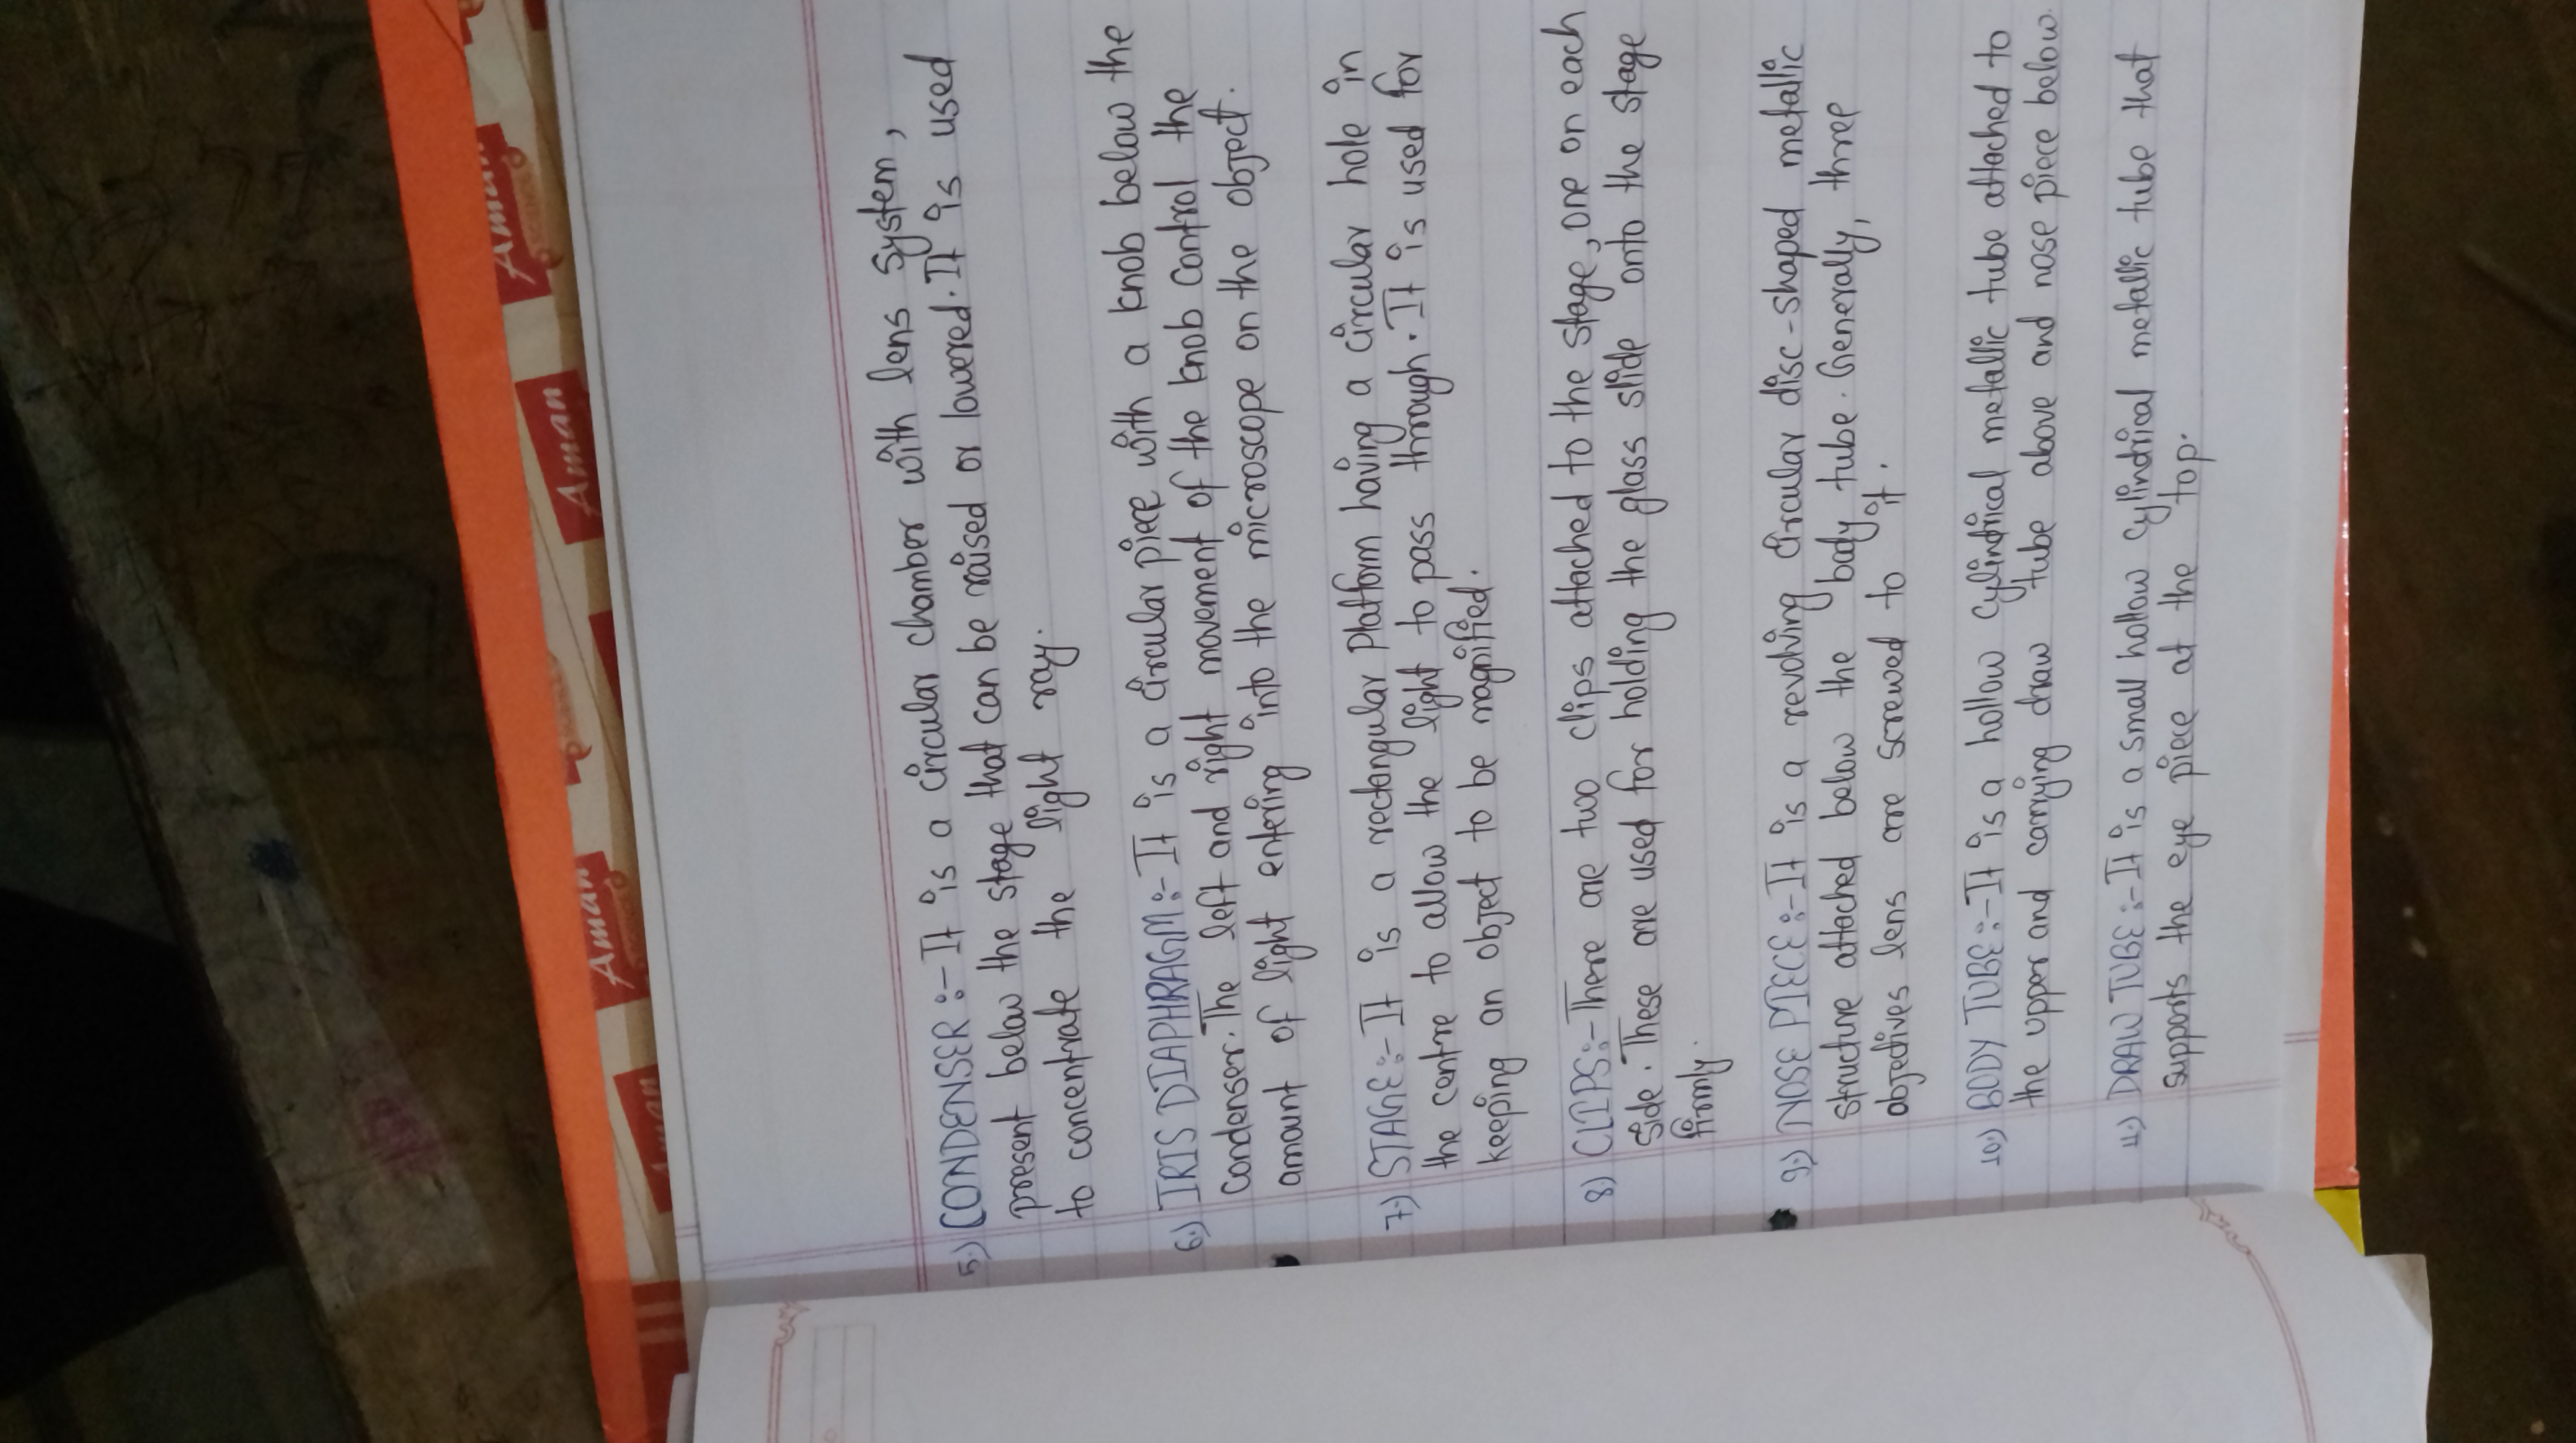 5.) CONDENSER :- It is a circular chamber with lens system,
present below the stage that can be raised or lowered. It is used
to concentrate the light ray.
6.) IRIS DIAPHRAGM :- It is a circular piece with a knob below the
condenser. The left and right movement of the knob control the
amount of light entering into the microscope on the object.
7.) STAGE :- It is a rectangular Platform having a circular hole in
the centre to allow the light to pass through. It is used for
keeping an object to be magnified.
8) CLIPS :- There are two clips attached to the stage, one on each
side. These are used for holding the glass slide onto the stage
firmly.
9.) NOSE PIECE :- It is a revolving circular disc-shaped metallic
structure attached below the body tube. Generally, three
objectives lens are screwed to it.
10.) BODY TUBE :- It is a hollow cylindrical metallic tube attached to
the upper and carrying draw tube above and nose piece below.
11.) DRAW TUBE :- It is a small hollow cylindrical metallic tube that
supports the eye piece at the top.
Aman
Aman
Aman
Aman